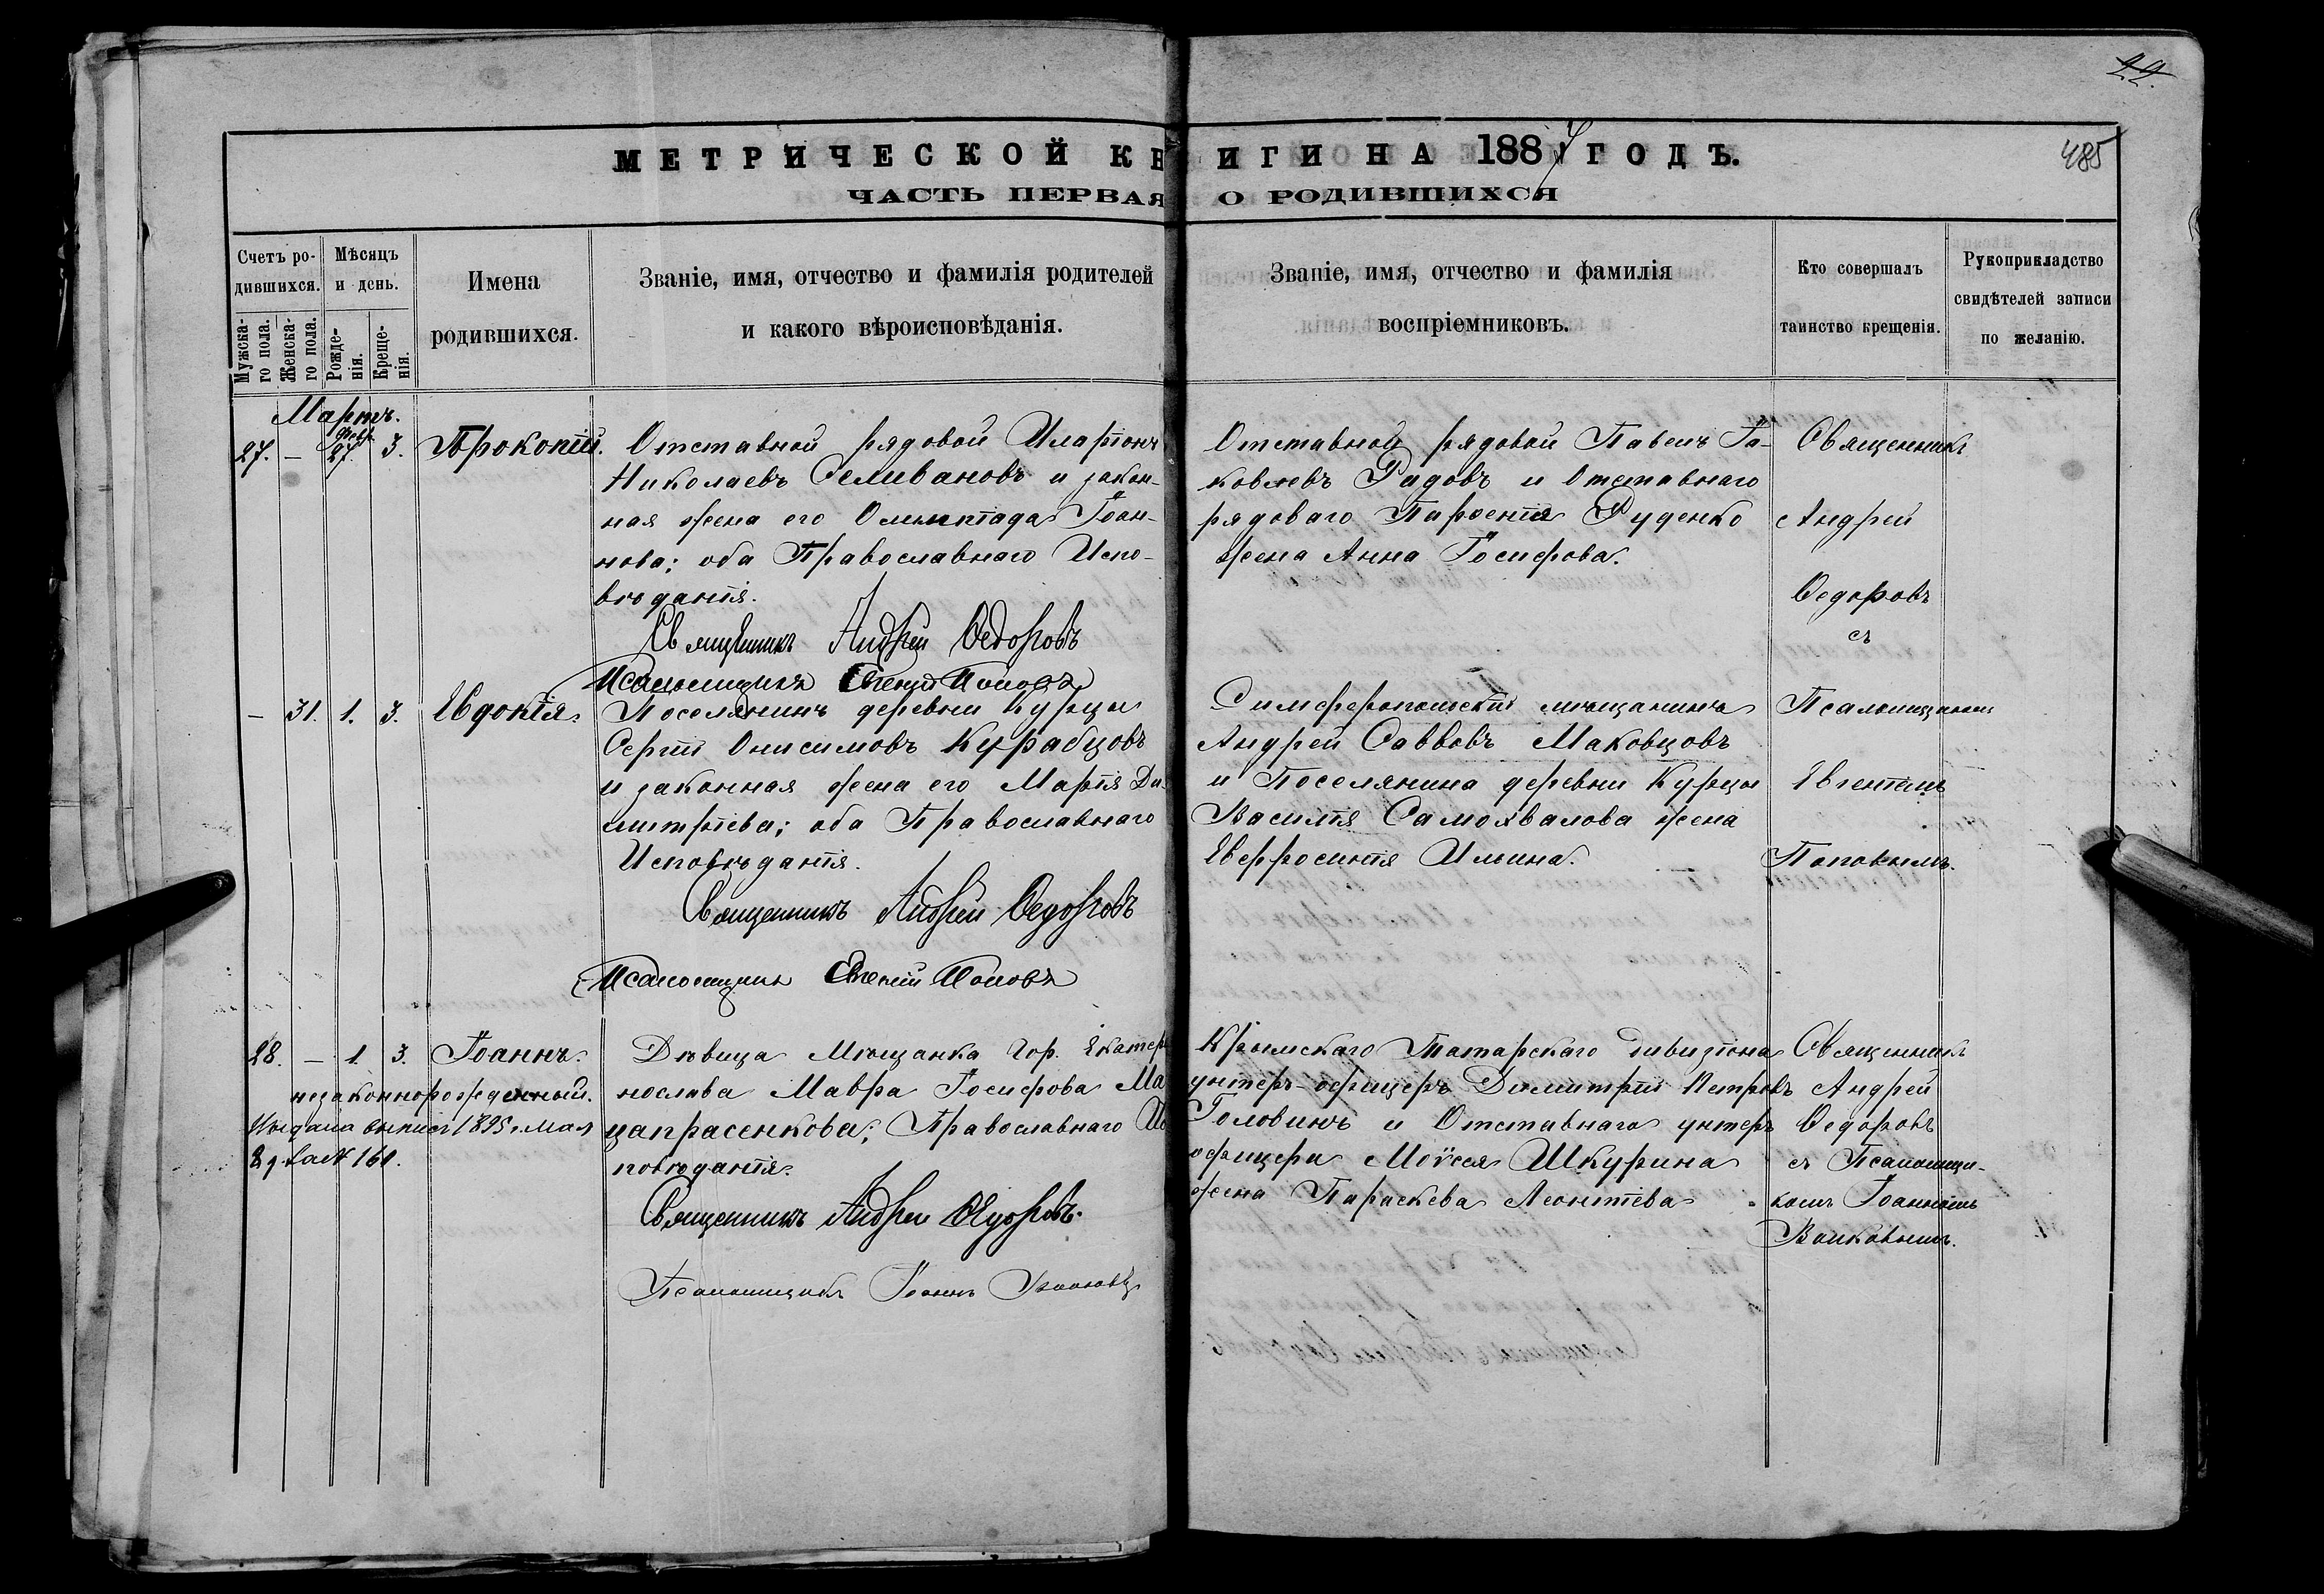 22.
МЕТРИЧЕСКОЙ КН ИГИ НА 1887 ГОДЪ.
485
ЧАСТЬ ПЕРВАЯ О РОДИВШИХСЯ
Счетъ ро-
дившихся.
Мужска-
го пола.
Женска-
го пола.
Мѣсяцъ
и день.
Рожде-
нія.
Креще-
нія.
Имена
родившихся.
Званіе, имя, отчество и фамилія родителей
и какого вѣроисповѣданія.
Званіе, имя, отчество и фамилія
воспріемниковъ.
Кто совершалъ
таинство крещенія.
Рукоприкладство
свидѣтелей записи
по желанію.
Мартъ.
27. – Февр. 27. 3. Прокопій.
Отставной рядовой Иларіонъ
Николаевъ Селивановъ и закон-
ная жена его Олимпіада Іоан-
нова; оба Православнаго Испо-
вѣданія.
Священникъ Андрей Ѳедоровъ
Псаломщикъ Евгеній Поповъ
Отставной рядовой Павелъ Іа-
ковлевъ Радовъ и Отставнаго
рядоваго Парѳенія Руденко
жена Анна Іосифова.
Священникъ
Андрей
Ѳедоровъ
съ
– 31. 1. 3. Евдокія.
Поселянинъ деревни Курцы
Сергій Онисимовъ Курабцовъ
и законная жена его Марія Ди-
митріева; оба Православнаго
Исповѣданія.
Священникъ Андрей Ѳедоровъ
Псаломщикъ Евгеній Поповъ
Симферопольскій мѣщанинъ
Андрей Саввовъ Маковцовъ
и Поселянина деревни Курцы
Василія Самохвалова жена
Евфросинія Ильина.
Псаломщикомъ
Евгеніемъ
Поповымъ.
28. – 1. 3. Іоаннъ.
незаконнорожденный.
Выдана выпись 1895 г. Мая
29 за № 160.
Дѣвица Мѣщанка Гор. Екатери
нослава Мавра Іосифова Ма
цапрасенкова; Православнаго Ис
повѣданія.
Священникъ Андрей Ѳедоровъ.
Псаломщикъ Іоаннъ
Крымскаго Татарскаго дивизіона
унтеръ-офицеръ Димитрій Петровъ
Головинъ и Отставнаго унтеръ
офицера Моѵсея Шкурина
жена Параскева Леонтіева
Священникъ
Андрей
Ѳедоровъ
съ Псаломщи-
комъ Іоанномъ